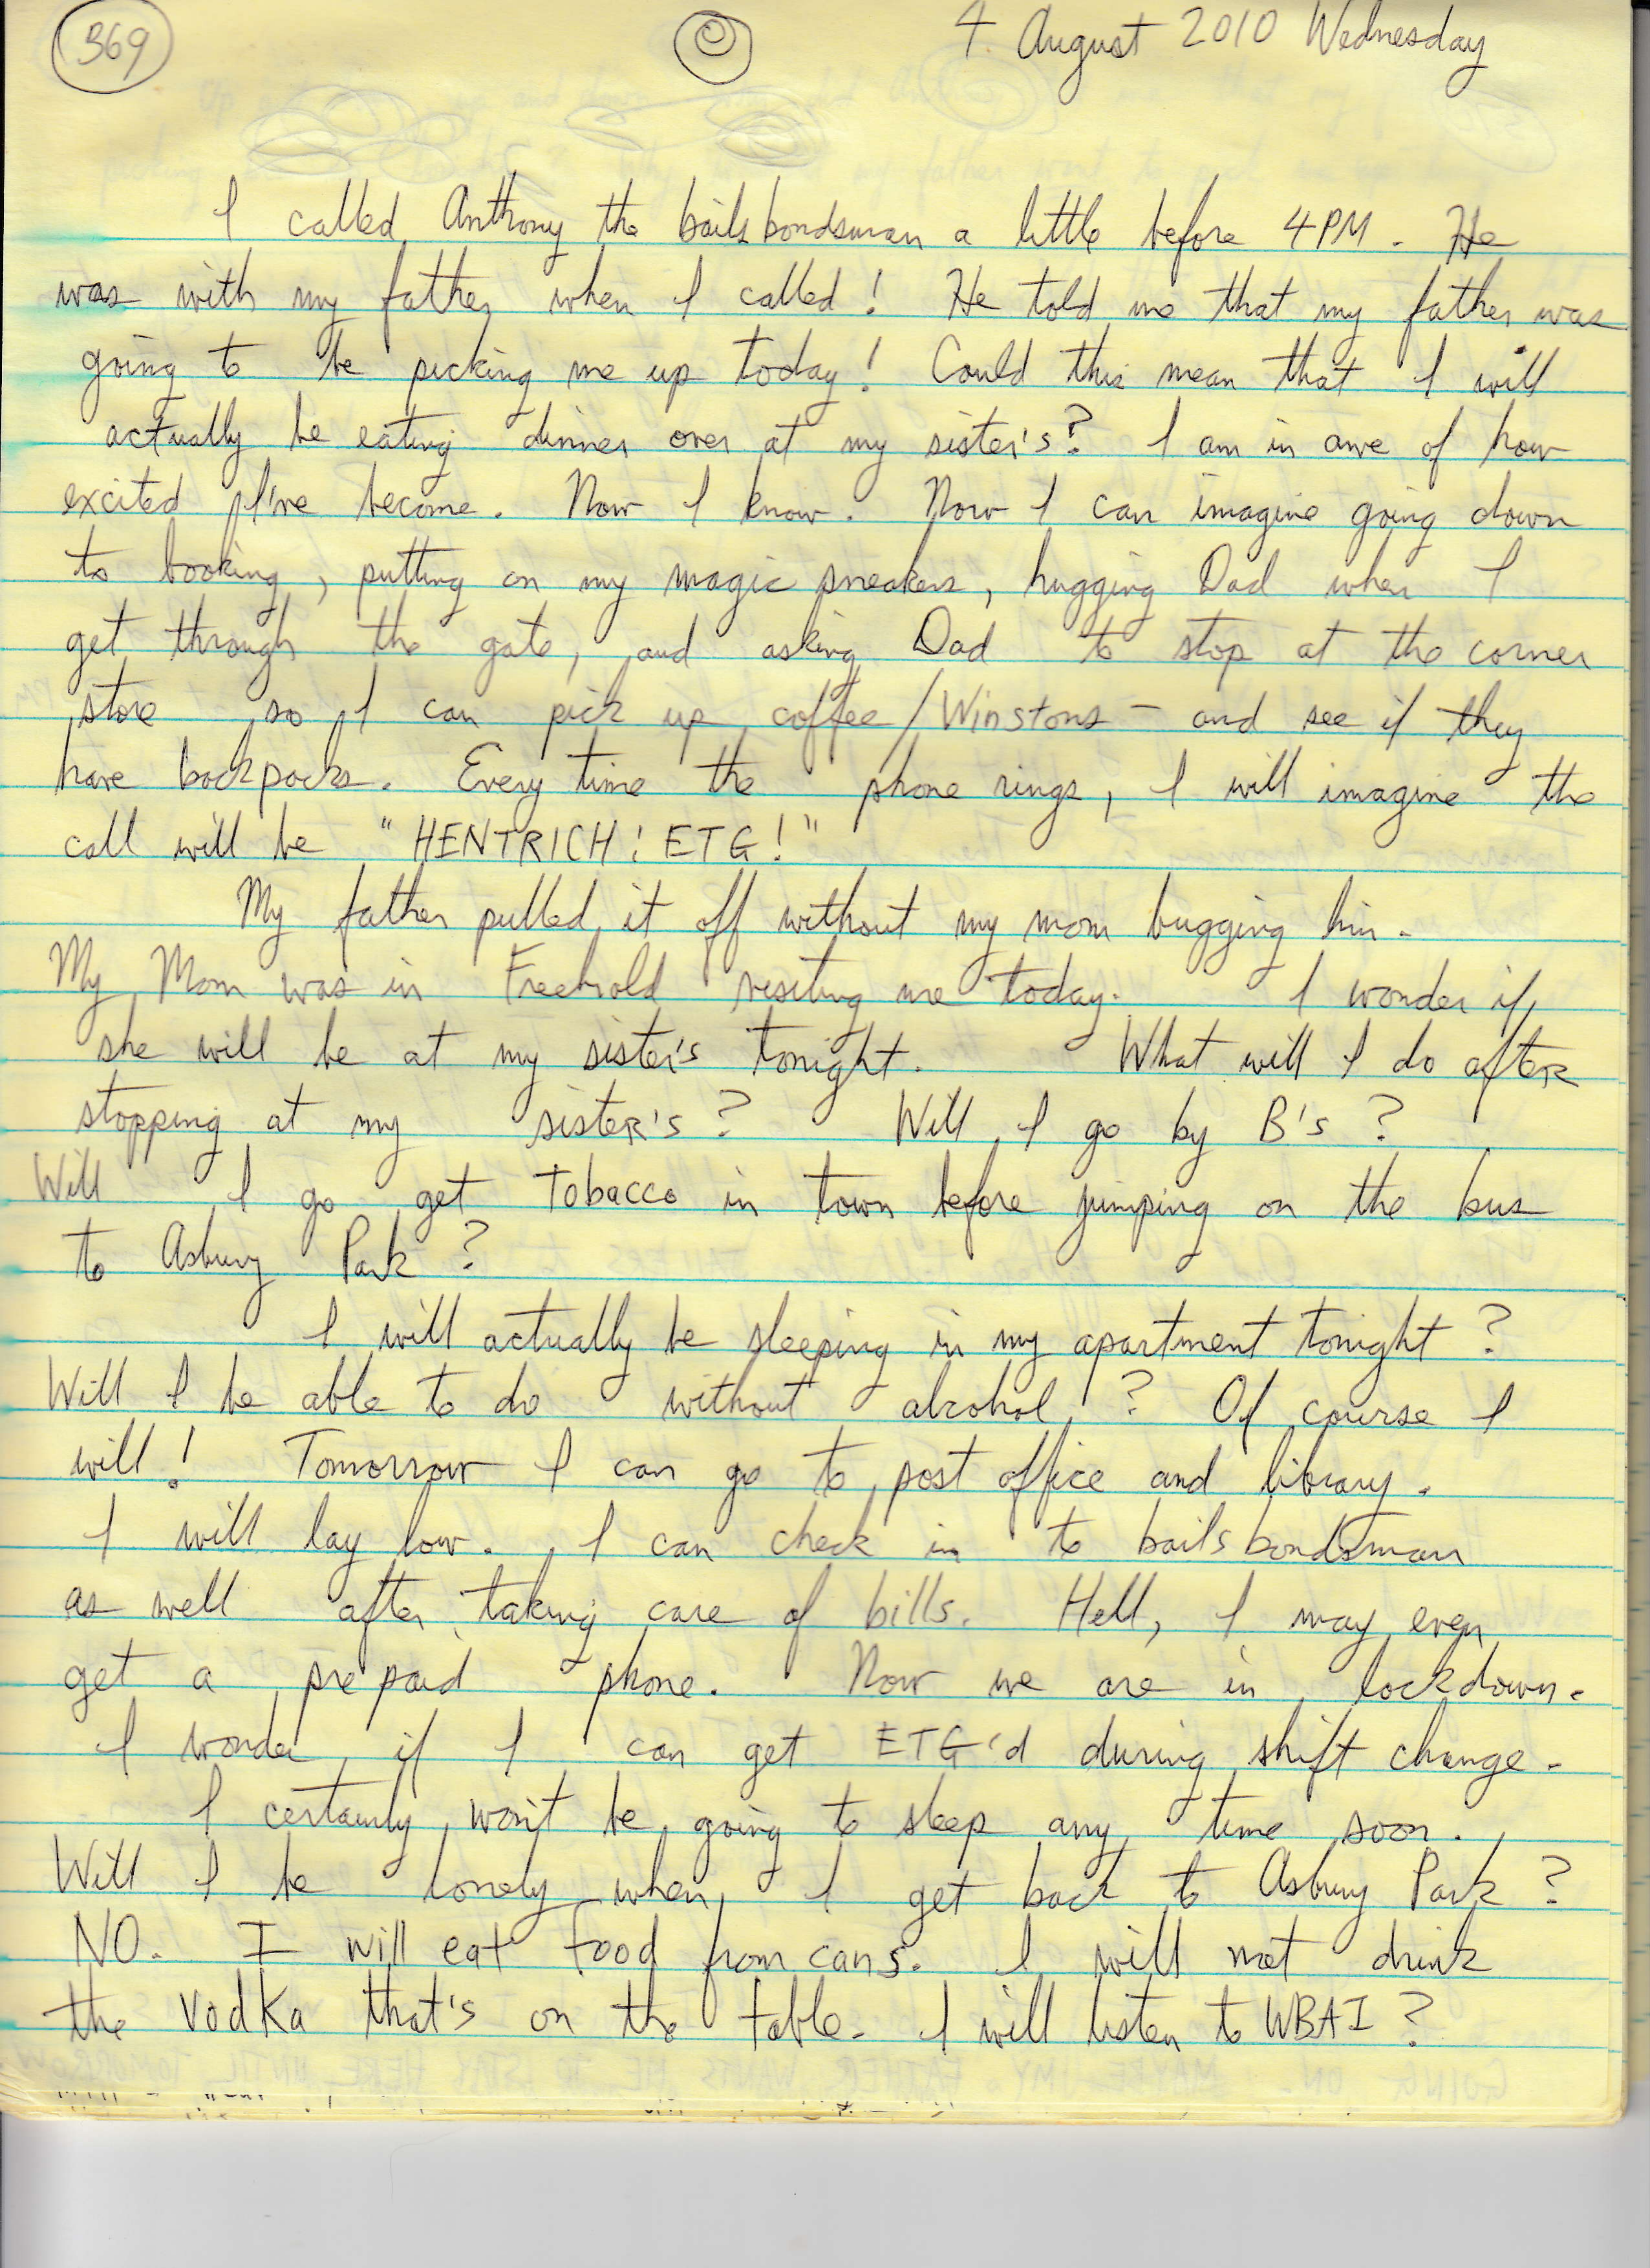 369 © 4 August 2010 Wednesday
I called Anthony the bails bondsman a little before 4PM. He
was with my father when I called! He told me that my father was
going to be picking me up today! Could this mean that I will
actually be eating dinner over at my sister's? I am in awe of how
excited I've become. Now I know. Now I can imagine going down
to booking, putting on my magic sneakers, hugging Dad when I
get through the gate, and asking Dad to stop at the corner
store so I can pick up coffee/Winstons - and see if they
have backpacks. Every time the phone rings, I will imagine the
call will be "HENTRICH! ETG!"
My father pulled it off without my mom bugging him.
My Mom was in Freehold visiting me today. I wonder if
she will be at my sister's tonight. What will I do after
stopping at my sister's? Will I go by B's?
Will I go get tobacco in town before jumping on the bus
to Asbury Park?
I will actually be sleeping in my apartment tonight?
Will I be able to do without alcohol? Of course I
will! Tomorrow I can go to post office and library.
I will lay low. I can check in to bails bondsman
as well after taking care of bills. Hell, I may even
get a prepaid phone. Now we are in lockdown.
I wonder if I can get ETG'd during shift change.
I certainly won't be going to sleep any time soon.
Will I be lonely when I get back to Asbury Park?
NO. I will eat food from cans. I will not drink
the vodka that's on the table. I will listen to WBAI?